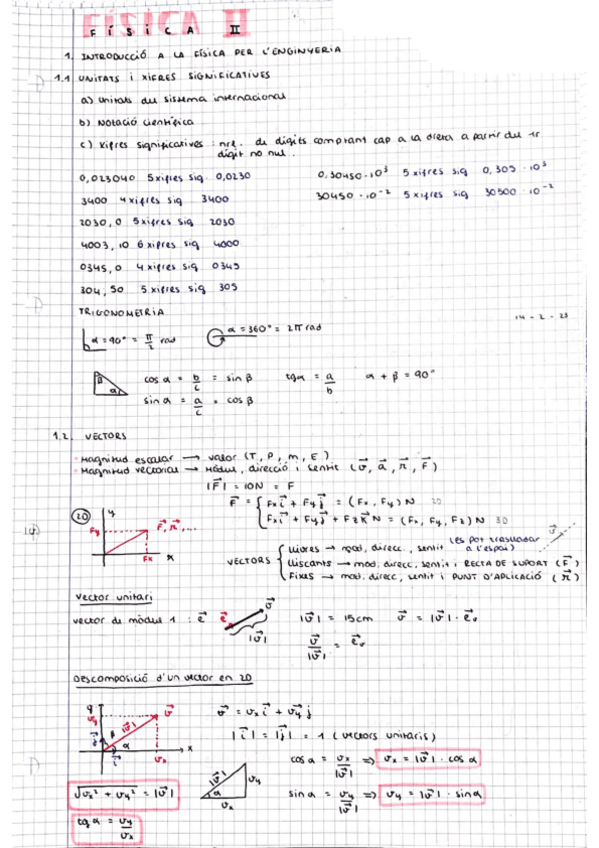 FÍSICA II
1. INTRODUCCIÓ A LA FÍSICA PER L'ENGINYERIA
1.1 UNITATS I XIFRES SIGNIFICATIVES
a) Unitats del sistema internacional
b) Notació científica
c) Xifres significatives : nre. de dígits comptant cap a la dreta a partir del 1r
dígit no nul.
0,023040 5 xifres sig. 0,0230
0,30450·10³ 5 xifres sig 0,305·10³
3400 4 xifres sig 3400
30450·10⁻² 5 xifres sig 30500·10⁻²
2030,0 5 xifres sig 2030
4003,10 6 xifres sig 4000
0345,0 4 xifres sig 0345
304,50 5 xifres sig 305
TRIGONOMETRIA
14-2-23
α=90° = π/2 rad
α=360° = 2π rad
β
α
cos α = b/c = sin β
tg α = a/b
α + β = 90°
sin α = a/c = cos β
1.2. VECTORS
· Magnitud escalar → valor (T, P, m, E)
· Magnitud vectorial → Mòdul, direcció i sentit (v⃗, a⃗, r⃗, F⃗)
|F⃗| = 10N = F
F⃗ = { Fx i⃗ + Fy j⃗ = (Fx, Fy) N 2D
Fx i⃗ + Fy j⃗ + Fz k⃗ N = (Fx, Fy, Fz) N 3D
2D
y
Fy
F⃗, r⃗, ...
Fx
x
VECTORS { Lliures → mod, direcc., sentit (es pot traslladar a l'espai)
v⃗
Lliscants → mod, direcc, sentit i RECTA DE SUPORT (F⃗)
Fixes → mod, direcc, sentit i PUNT D'APLICACIÓ (r⃗)
Vector unitari
vector de mòdul 1 : e⃗
e⃗
v⃗
|v⃗|
|v⃗| = 15cm
v⃗ = |v⃗| · e⃗ᵥ
v⃗/|v⃗| = e⃗ᵥ
Descomposició d'un vector en 2D
y
vy
v⃗
|v⃗|
β
α
j⃗
i⃗
vx
x
v⃗ = vx i⃗ + vy j⃗
|i⃗| = |j⃗| = 1 (vectors unitaris)
cos α = vx/|v⃗| ⇒ vx = |v⃗| · cos α
√(vx² + vy²) = |v⃗|
|v⃗|
vy
α
vx
sin α = vy/|v⃗| ⇒ vy = |v⃗| · sin α
tg α = vy/vx